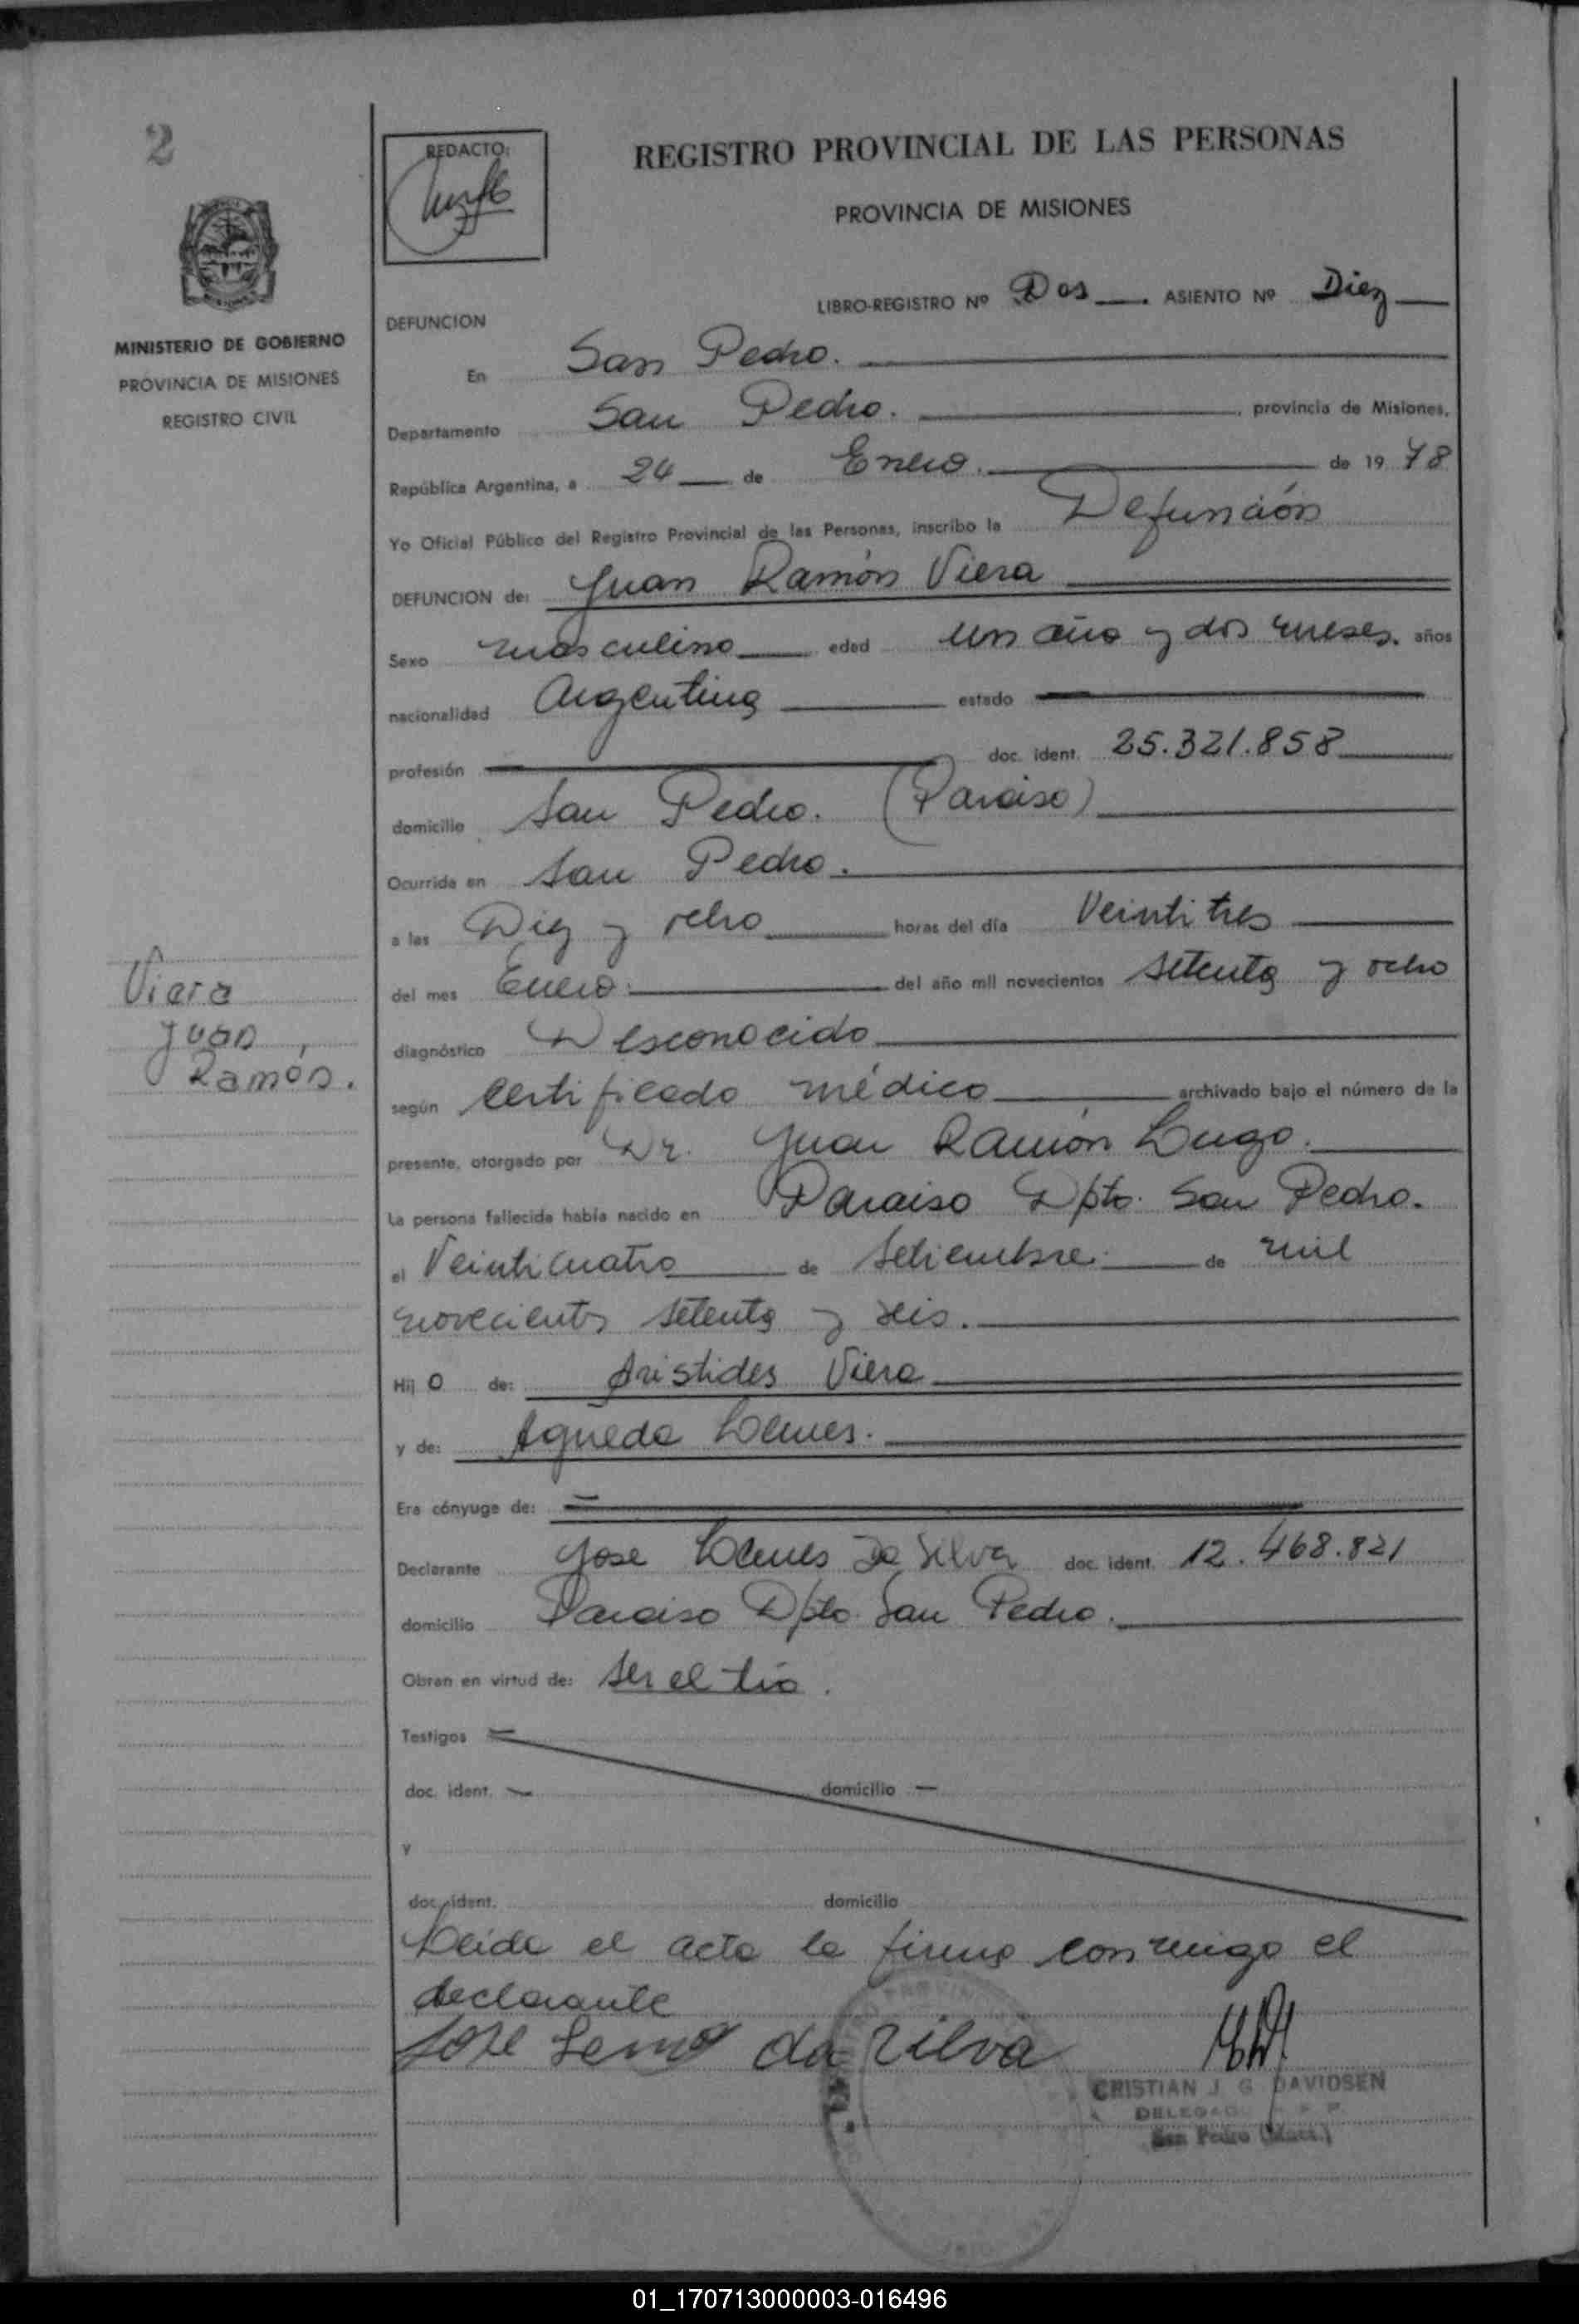 2
REDACTO:
REGISTRO PROVINCIAL DE LAS PERSONAS
PROVINCIA DE MISIONES
MINISTERIO DE GOBIERNO
PROVINCIA DE MISIONES
REGISTRO CIVIL
LIBRO-REGISTRO Nº Dos ASIENTO Nº Diez
DEFUNCION
En San Pedro.
Departamento San Pedro. , provincia de Misiones,
República Argentina, a 24 de Enero. de 19 78
Yo Oficial Público del Registro Provincial de las Personas, inscribo la Defunción
DEFUNCION de: Juan Ramón Viera
Sexo masculino edad un año y dos meses. años
nacionalidad Argentina estado
profesión doc. ident. 25.321.858
domicilio San Pedro. (Paraiso)
Ocurrida en San Pedro.
a las Diez y ocho horas del día Veintitres
del mes Enero. del año mil novecientos setenta y ocho
diagnóstico Desconocido
según certificado médico archivado bajo el número de la
presente, otorgado por Dr. Juan Ramón Lugo.
La persona fallecida había nacido en Paraiso Dpto. San Pedro.
el Veinticuatro de Setiembre. de mil
novecientos setenta y seis.
Hij o de: Aristides Viera
y de: Agueda Lemes.
Era cónyuge de:
Declarante Jose Lemes Da Silva doc. ident. 12.468.821
domicilio Paraiso Dpto. San Pedro.
Obran en virtud de: ser el tío.
Testigos
doc. ident. domicilio
y
doc. ident. domicilio
Leida el acta la firma conmigo el
declarante
Jose Lemes da silva
CRISTIAN J. G. DAVIDSEN
DELEGADO
San Pedro (Mnes.)
Viera
Juan,
Ramón.
01_170713000003-016496